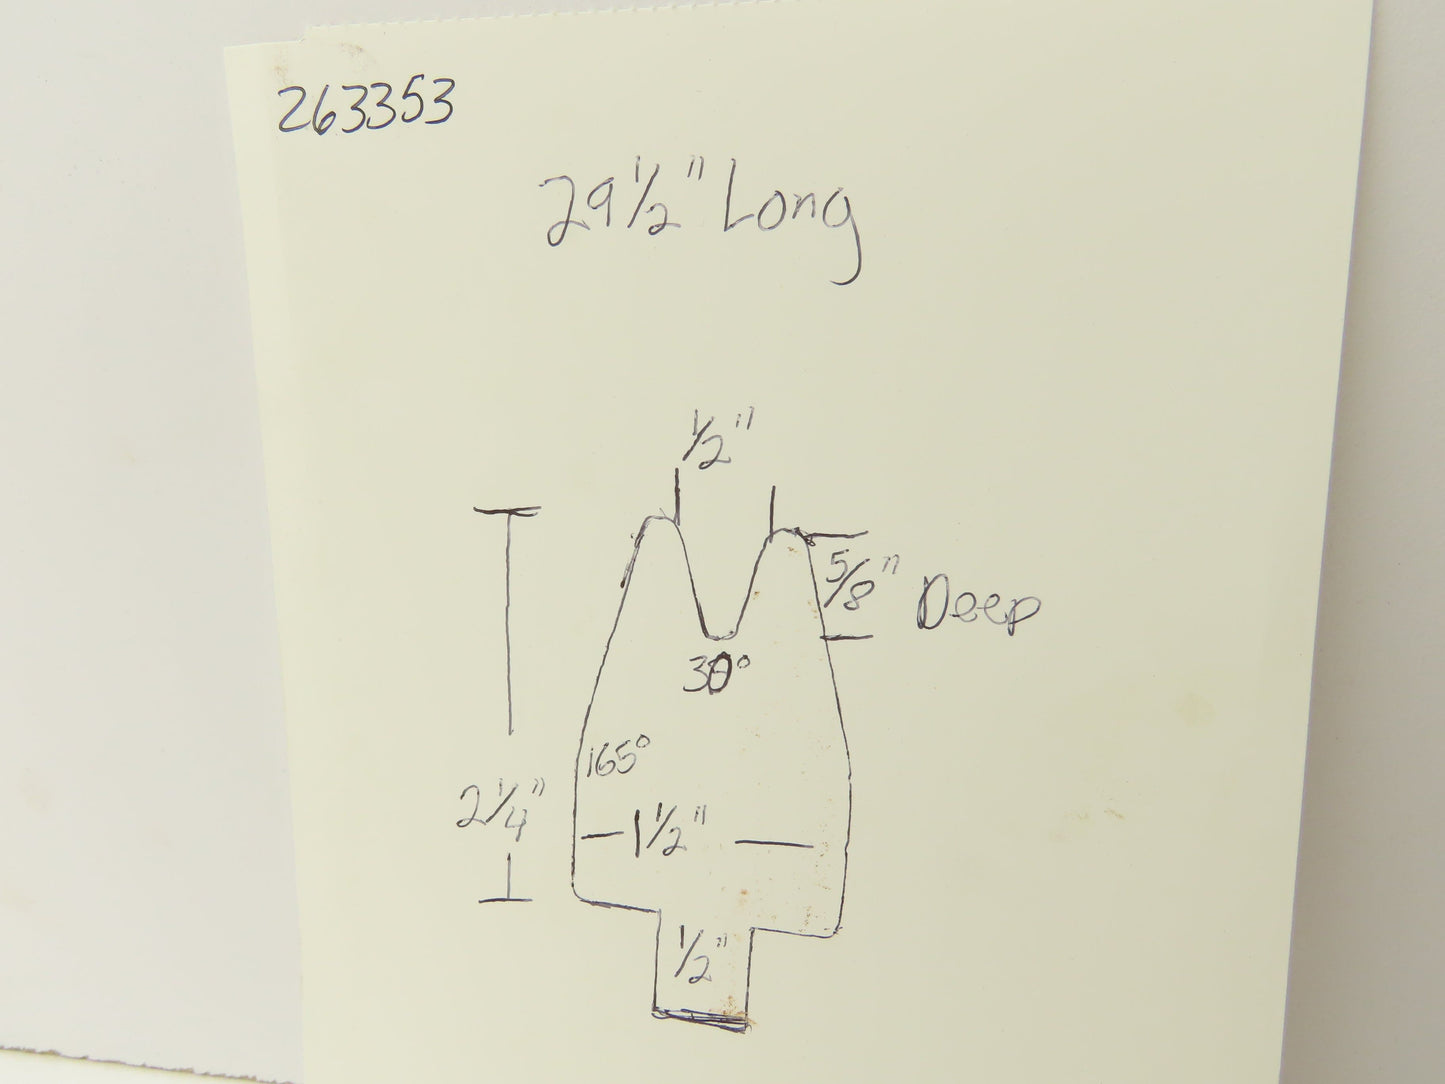 263353
29 1/2" Long
1/2"
5/8" Deep
30°
165°
2 1/4"
1 1/2"
1/2"